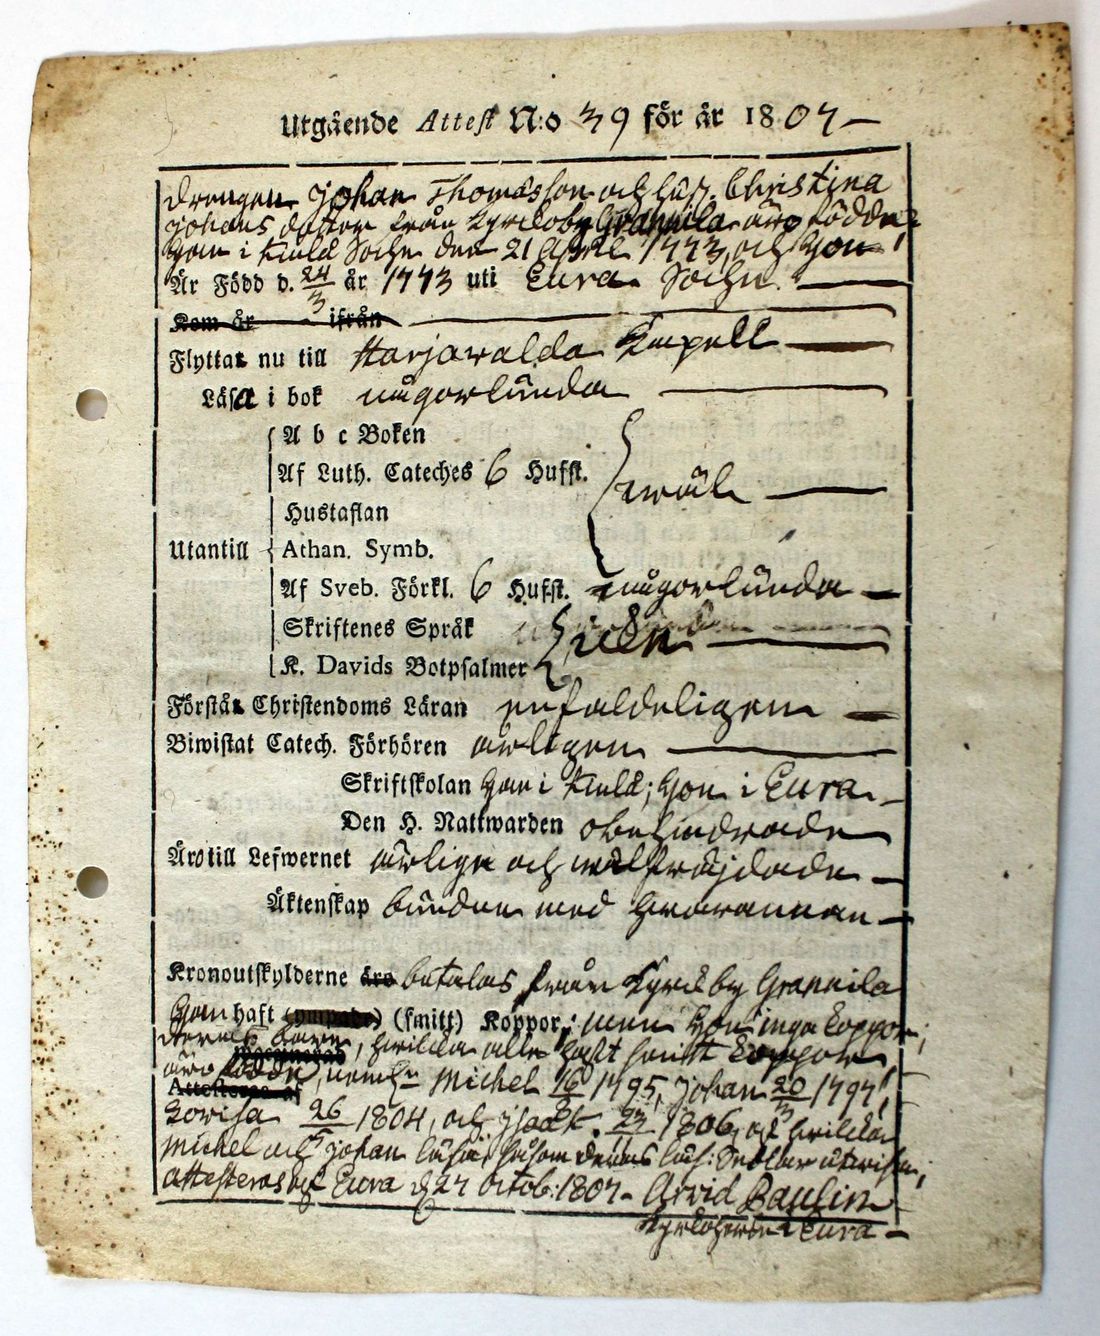 Utgående Attest N:o 39 för år 1807
Drengen Johan Thomasson och hust. Christina
Johans dotter från Kyrckoby Grannila äro födde;
Han i Kiula Sochn den 21 April 1773, och Hon
Är Född d. 24/3 år 1773 uti Eura Sochn.
Kom år ifrån
Flyttar nu till Harjawalda Kapell
Läsa i bok någorlunda
A b c Boken
Af Luth. Cateches 6 Hufst. wäl
Hustaflan
Utantill Athan. Symb.
Af Sveb. Förkl. 6 Hufst. någorlunda
Skriftenes Språk
K. Davids Botpsalmer
Förstår Christendoms Läran enfaldeligen
Biwistat Catech. Förhören årligen
Skriftskolan Han i Kiula; Hon i Eura
Den H. Nattwarden obehindrade
Äro till Lefwernet ärlige och wälfrejdade
Äktenskap bundne med hwarannan
Kronoutskylderne äro betalas från Kyrckby Grannila
Han haft (ympade) (smitt) Koppor; men Hon inga koppor;
deras barn, hvilka alla haft smitt koppor
äro födde, nemln Michel 1795, Johan 20/3 1797,
Attesteras af
Lovisa 26 1804, och Isaak 23 1806, af hvilka
Michel och Johan läsa, såsom deras läs: Sedlar utwisa;
attesteras af Eura d. 27 Octob: 1807. Arvid Paulin
Kyrckoherde i Eura